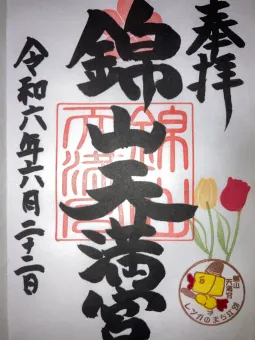 奉拝
錦山天満宮
令和六年六月二十二日
錦山天満宮
レンガのまち江別